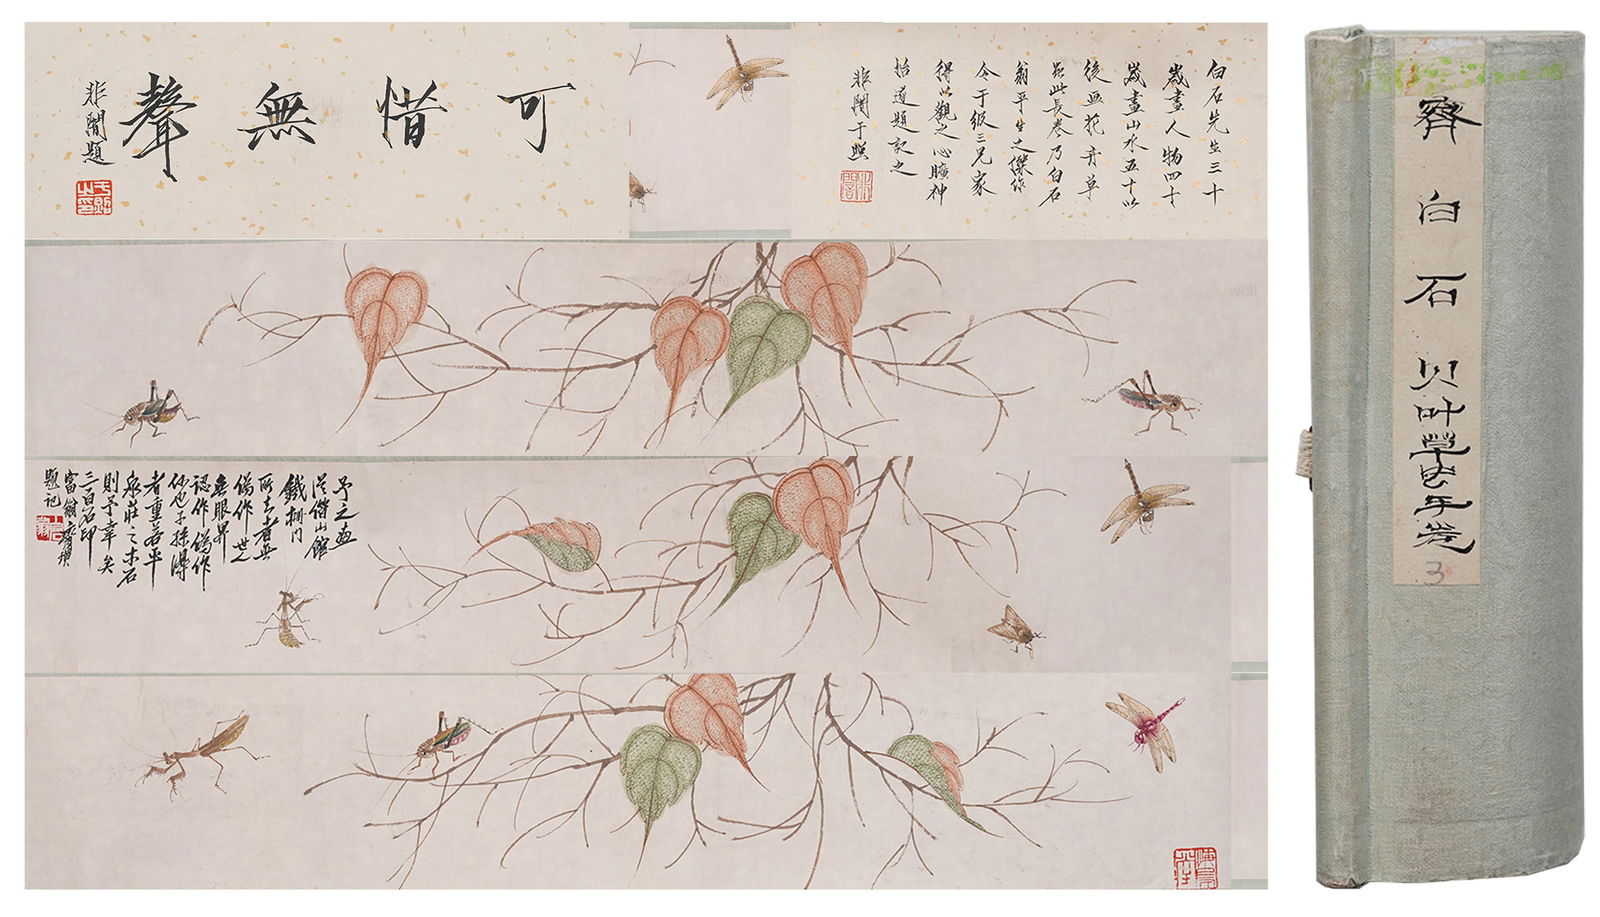 可惜無聲
非闇題
白石先生三十
歲畫人物四十
歲畫山水五十以
後畫花卉草
蟲此長卷乃白石
翁平生之傑作
今于級三兄家
得以觀之心曠神
怡遂題記之
非闇于照
予之畫
從借山館
鐵柵門
所去者無
偽作世人
無眼界
認作偽作
何也子孫得
者重若平
泉莊之木石
則予幸矣
三百石印
富翁齊璜
題記
齊白石貝叶草虫手卷
3